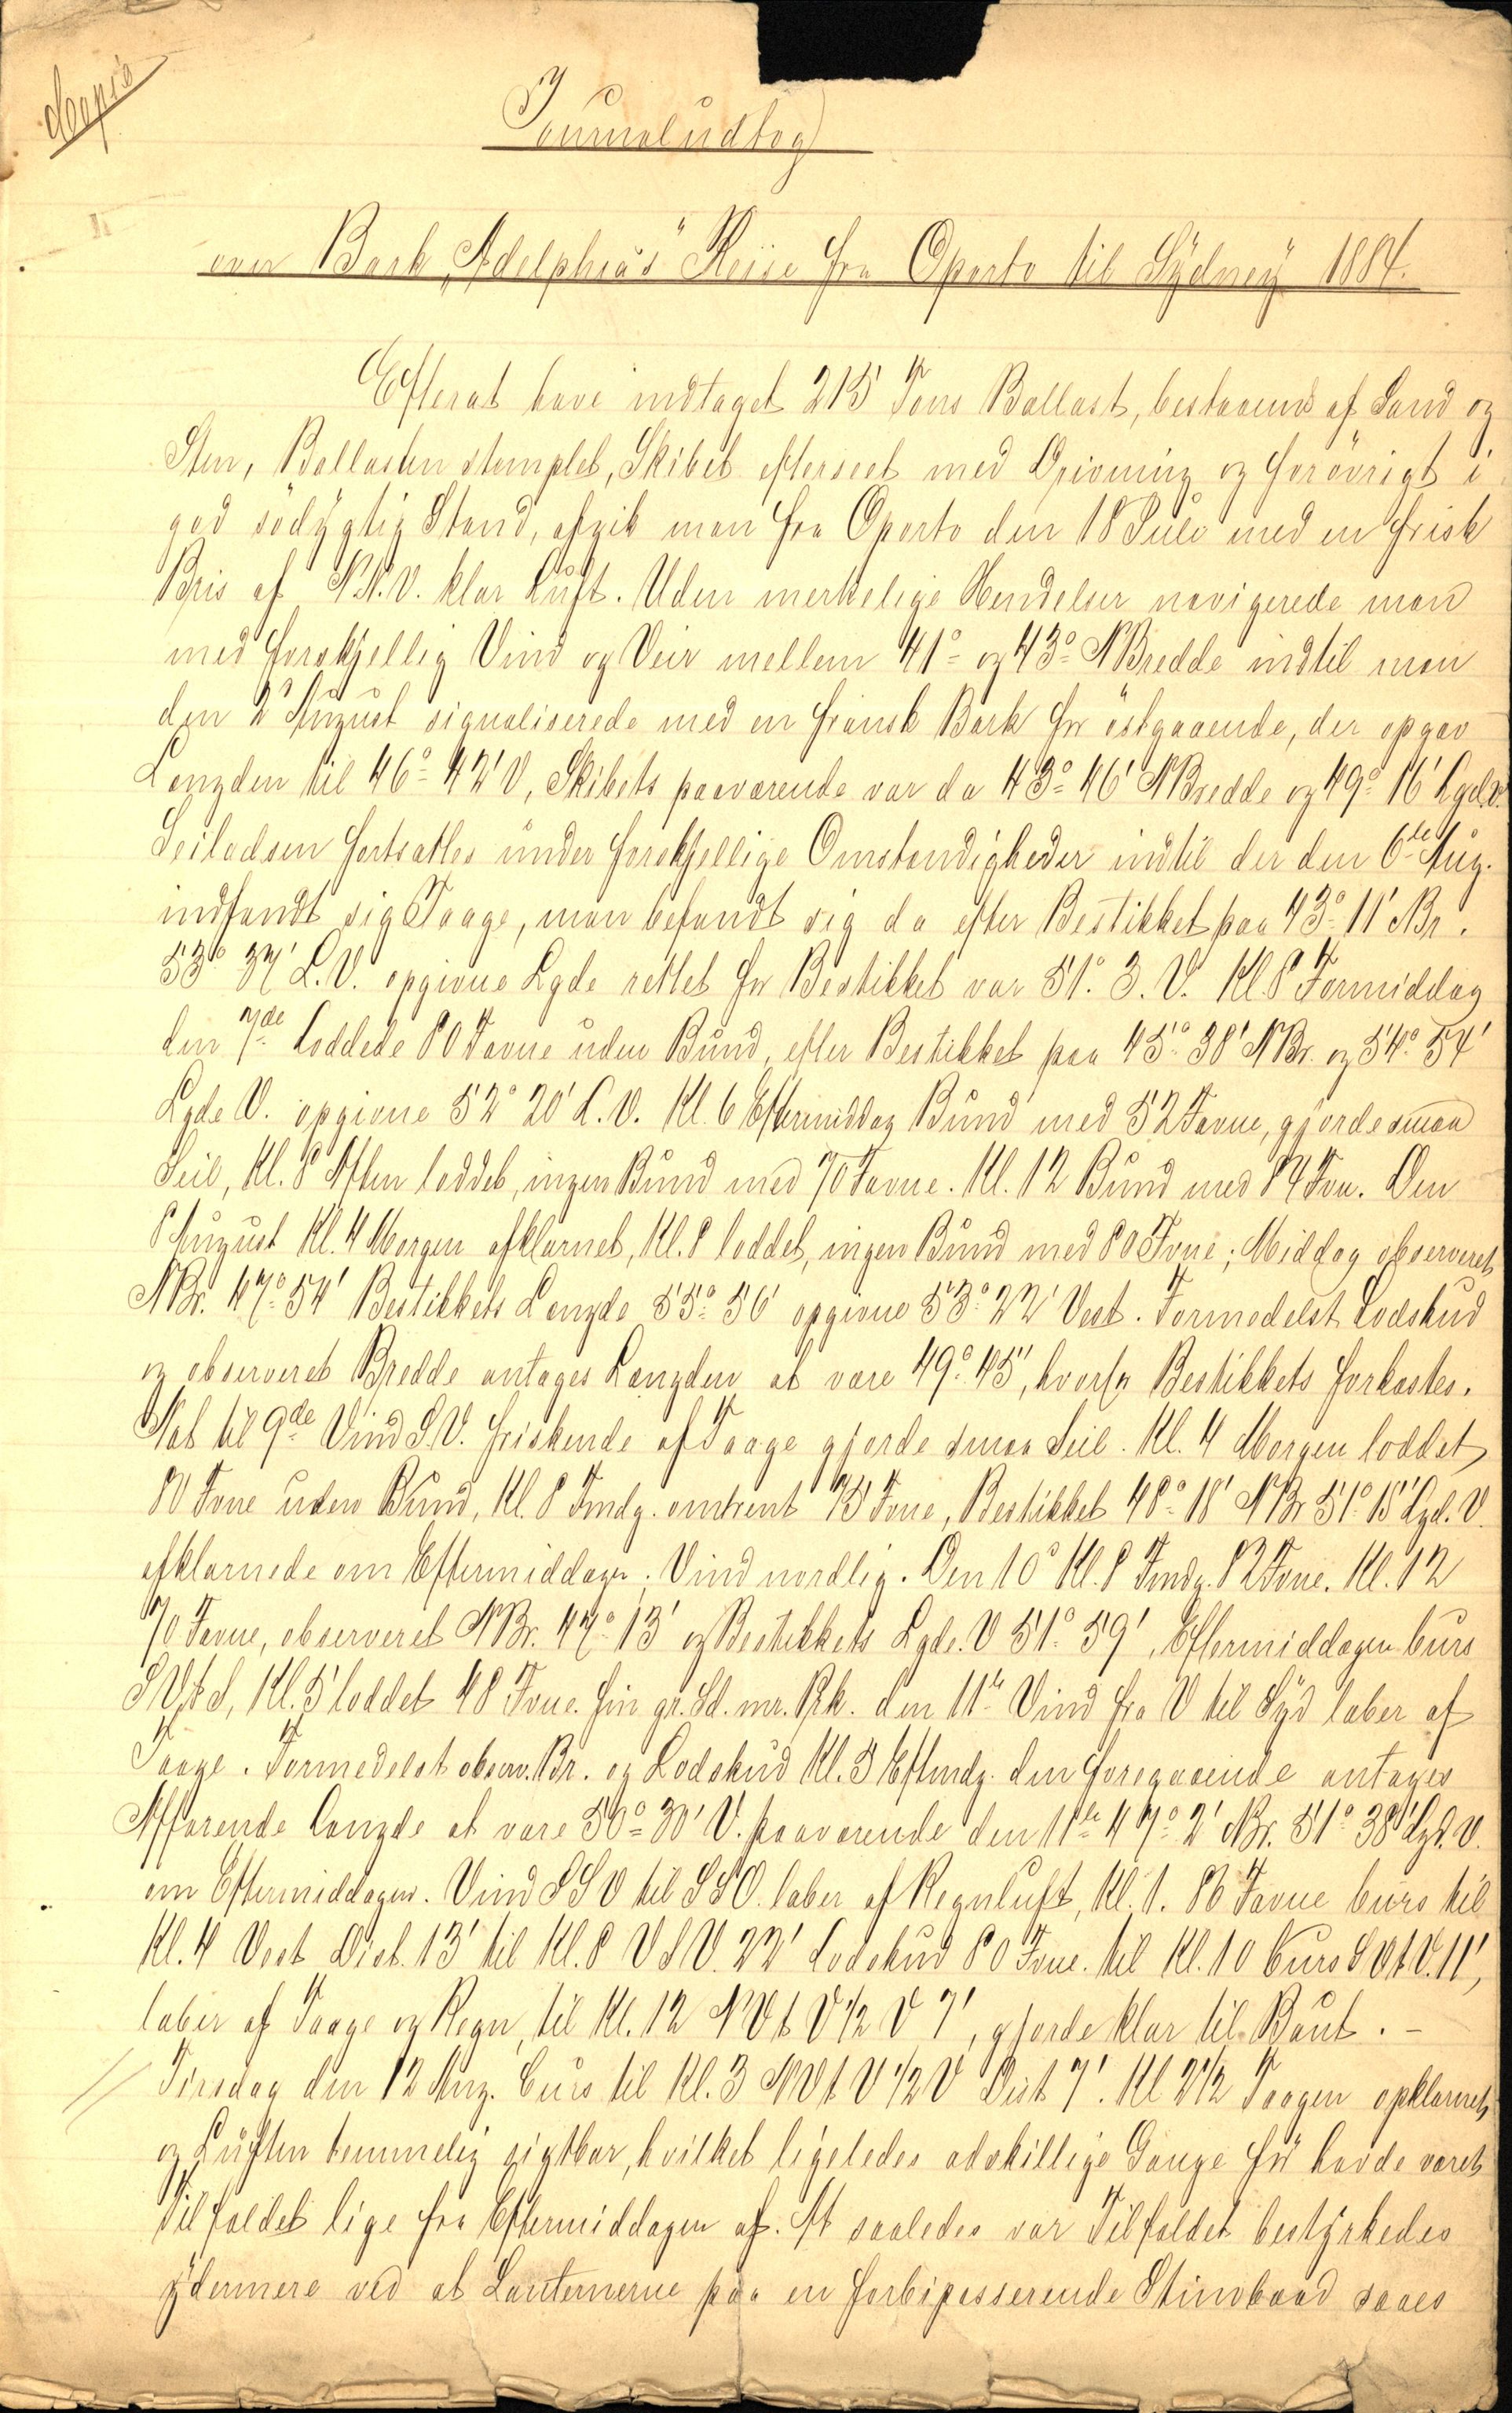 Copie
Journaludtog
over Bark „Adelphia's" Reise fra Oporto til Sydney 1884.
Efterat have indtaget 215 Tons Ballast, bestaaende af Sand og
Sten, Ballasten stemplet, Skibet efterseet med Drivning og forövrigt i
god södygtig Stand, afgik man fra Oporto den 18 Juli med en frisk
Bris af N.N.V. klar Luft. Uden merkelige Hendelser navigerede man
med forskjellig Vind og Veir mellem 41° og 43° NBredde indtil man
den 2 August signaliserede med en fransk Bark for östgaaende, der opgav
Længden til 46° 42' V, Skibets paaværende var da 43° 46' NBredde og 49° 16' Lgd.V.
Seiladsen fortsattes under forskjellige Omstændigheder indtil der den 6te Aug.
indfandt sig Taage, man befandt sig da efter Bestikket paa 43° 11' NBr.
53° 37' L.V. opgivne Lgde rettet for Bestikket var 51° 3. V. Kl. 8 Formiddag
den 7de Loddede 80 Favne uden Bund, efter Bestikket paa 45° 38' NBr. og 54° 54'
Lgde V. opgivne 52° 20' L.V. Kl. 6 Eftermiddag Bund med 52 Favne, gjorde smaa
Seil, Kl. 8 Aften loddet, ingen Bund med 70 Favne. Kl. 12 Bund med 84 Fvn. Den
8 August Kl. 4 Morgen afklarnet, Kl. 8 loddet, ingen Bund med 80 Fvne; Middag observeret
NBr. 47° 54' Bestikkets Længde 55° 56' opgivne 53° 22' Vest. Formedelst Lodskud
og observeret Bredde antages Længden at være 49° 45', hvorfor Bestikkets forkastes.
Nat til 9de Vind S.V. friskende af Taage gjorde smaa Seil. Kl. 4 Morgen loddet
80 Fvne uden Bund, Kl. 8 Fmdg. omtrent 75 Fvne, Bestikket 48° 18' NBr 51° 15' Lgd. V.
afklarnede om Eftermiddagen; Vind nordlig. Den 10° Kl. 8 Fmdg. 82 Fvne. Kl. 12
70 Favne, observeret NBr. 47° 13' og Bestikkets Lgde. V 51° 59', Eftermiddagen Curs
SVtS, Kl. 5 loddet 48 Fvne. fin gr. Sd. mr. Pk. den 11te Vind fra V til Syd laber af
Taage. Formedelst observ. Br. og Lodskud Kl. 5 Eftmdg. den foregaaende antages
Affarende Længde at være 50° 30' V. paaværende den 11te 47° 2' NBr. 51° 38' Lgd. V.
om Eftermiddagen. Vind SSV til SSO. laber af Regnluft, Kl. 1. 86 Favne Curs til
Kl. 4 Vest Dist. 13' til Kl. 8 VSV. 22' Lodskud 80 Fvne. til Kl. 10 Curs SVtV. 11',
laber af Taage og Regn, til Kl. 12 NVtV½V 7', gjorde klar til Baut. –
Tirsdag den 12 Aug. Curs til Kl. 3 NVtV½V Dist 7'. Kl 2½ Taagen opklarnet
og Luften temmelig sigtbar, hvilket ligeledes adskillige Gange för havde været
Tilfældet lige fra Eftermiddagen af. At saaledes var Tilfældet bestyrkedes
ydermere ved at Lanternerne paa en forbipasserende Stimbaad saaes